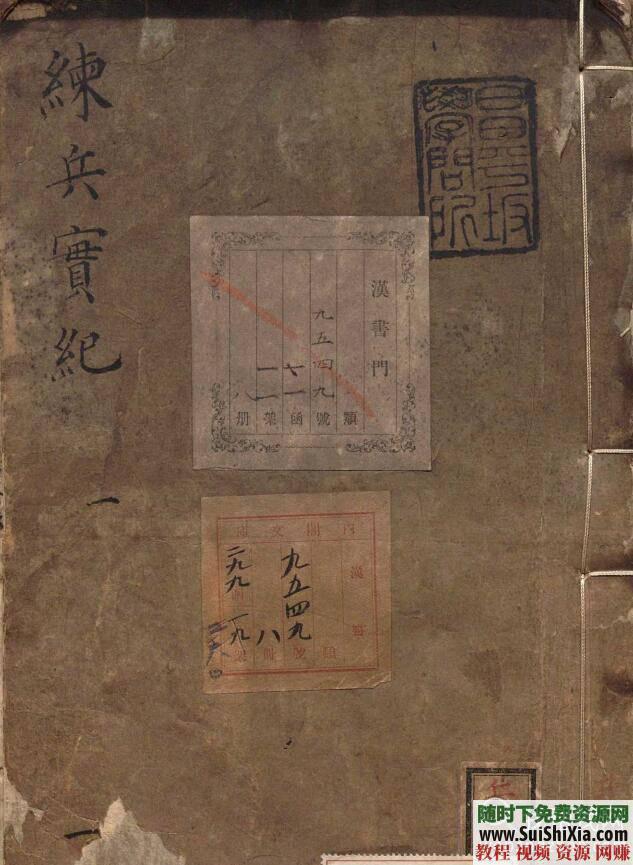 練兵實紀
一
昌平坂
學問所
漢書門
九五四九
八
册架函號類
内閣文庫
漢書
九五四九
八
二九九
一九
一
随时下免费资源网
www.SuiShiXia.com
教程 视频 资源 网赚